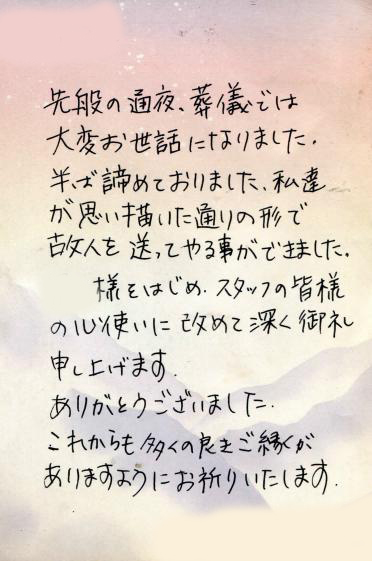 先般の通夜、葬儀では
大変お世話になりました。
半ば諦めておりました、私達
が思い描いた通りの形で
故人を送ってやる事ができました。
様をはじめ、スタッフの皆様
の心使いに改めて深く御礼
申し上げます。
ありがとうございました。
これからも多くの良きご縁が
ありますようにお祈りいたします。